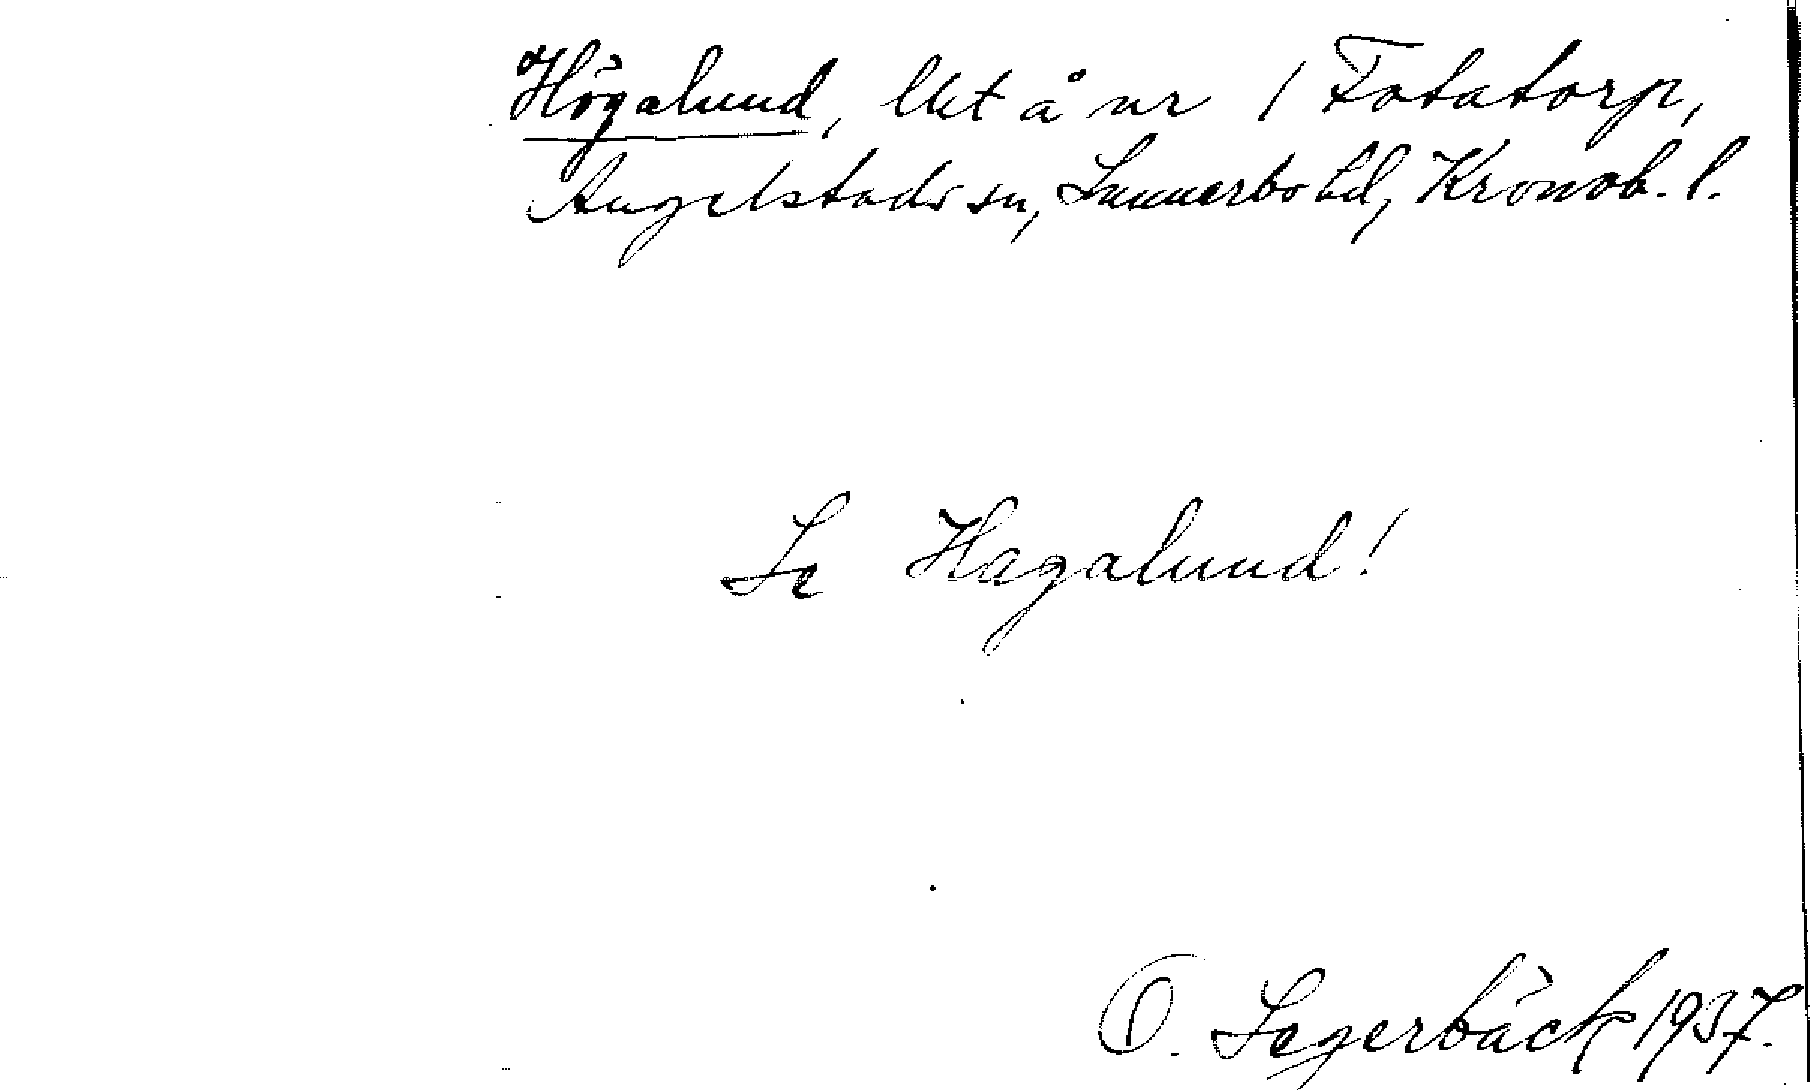 Högalund, lht å nr 1 Fotatorp,
Angelstads sn, Sunnerbo hd, Kronob. l.
Se Hagalund!
O. Segerbäck 1937.